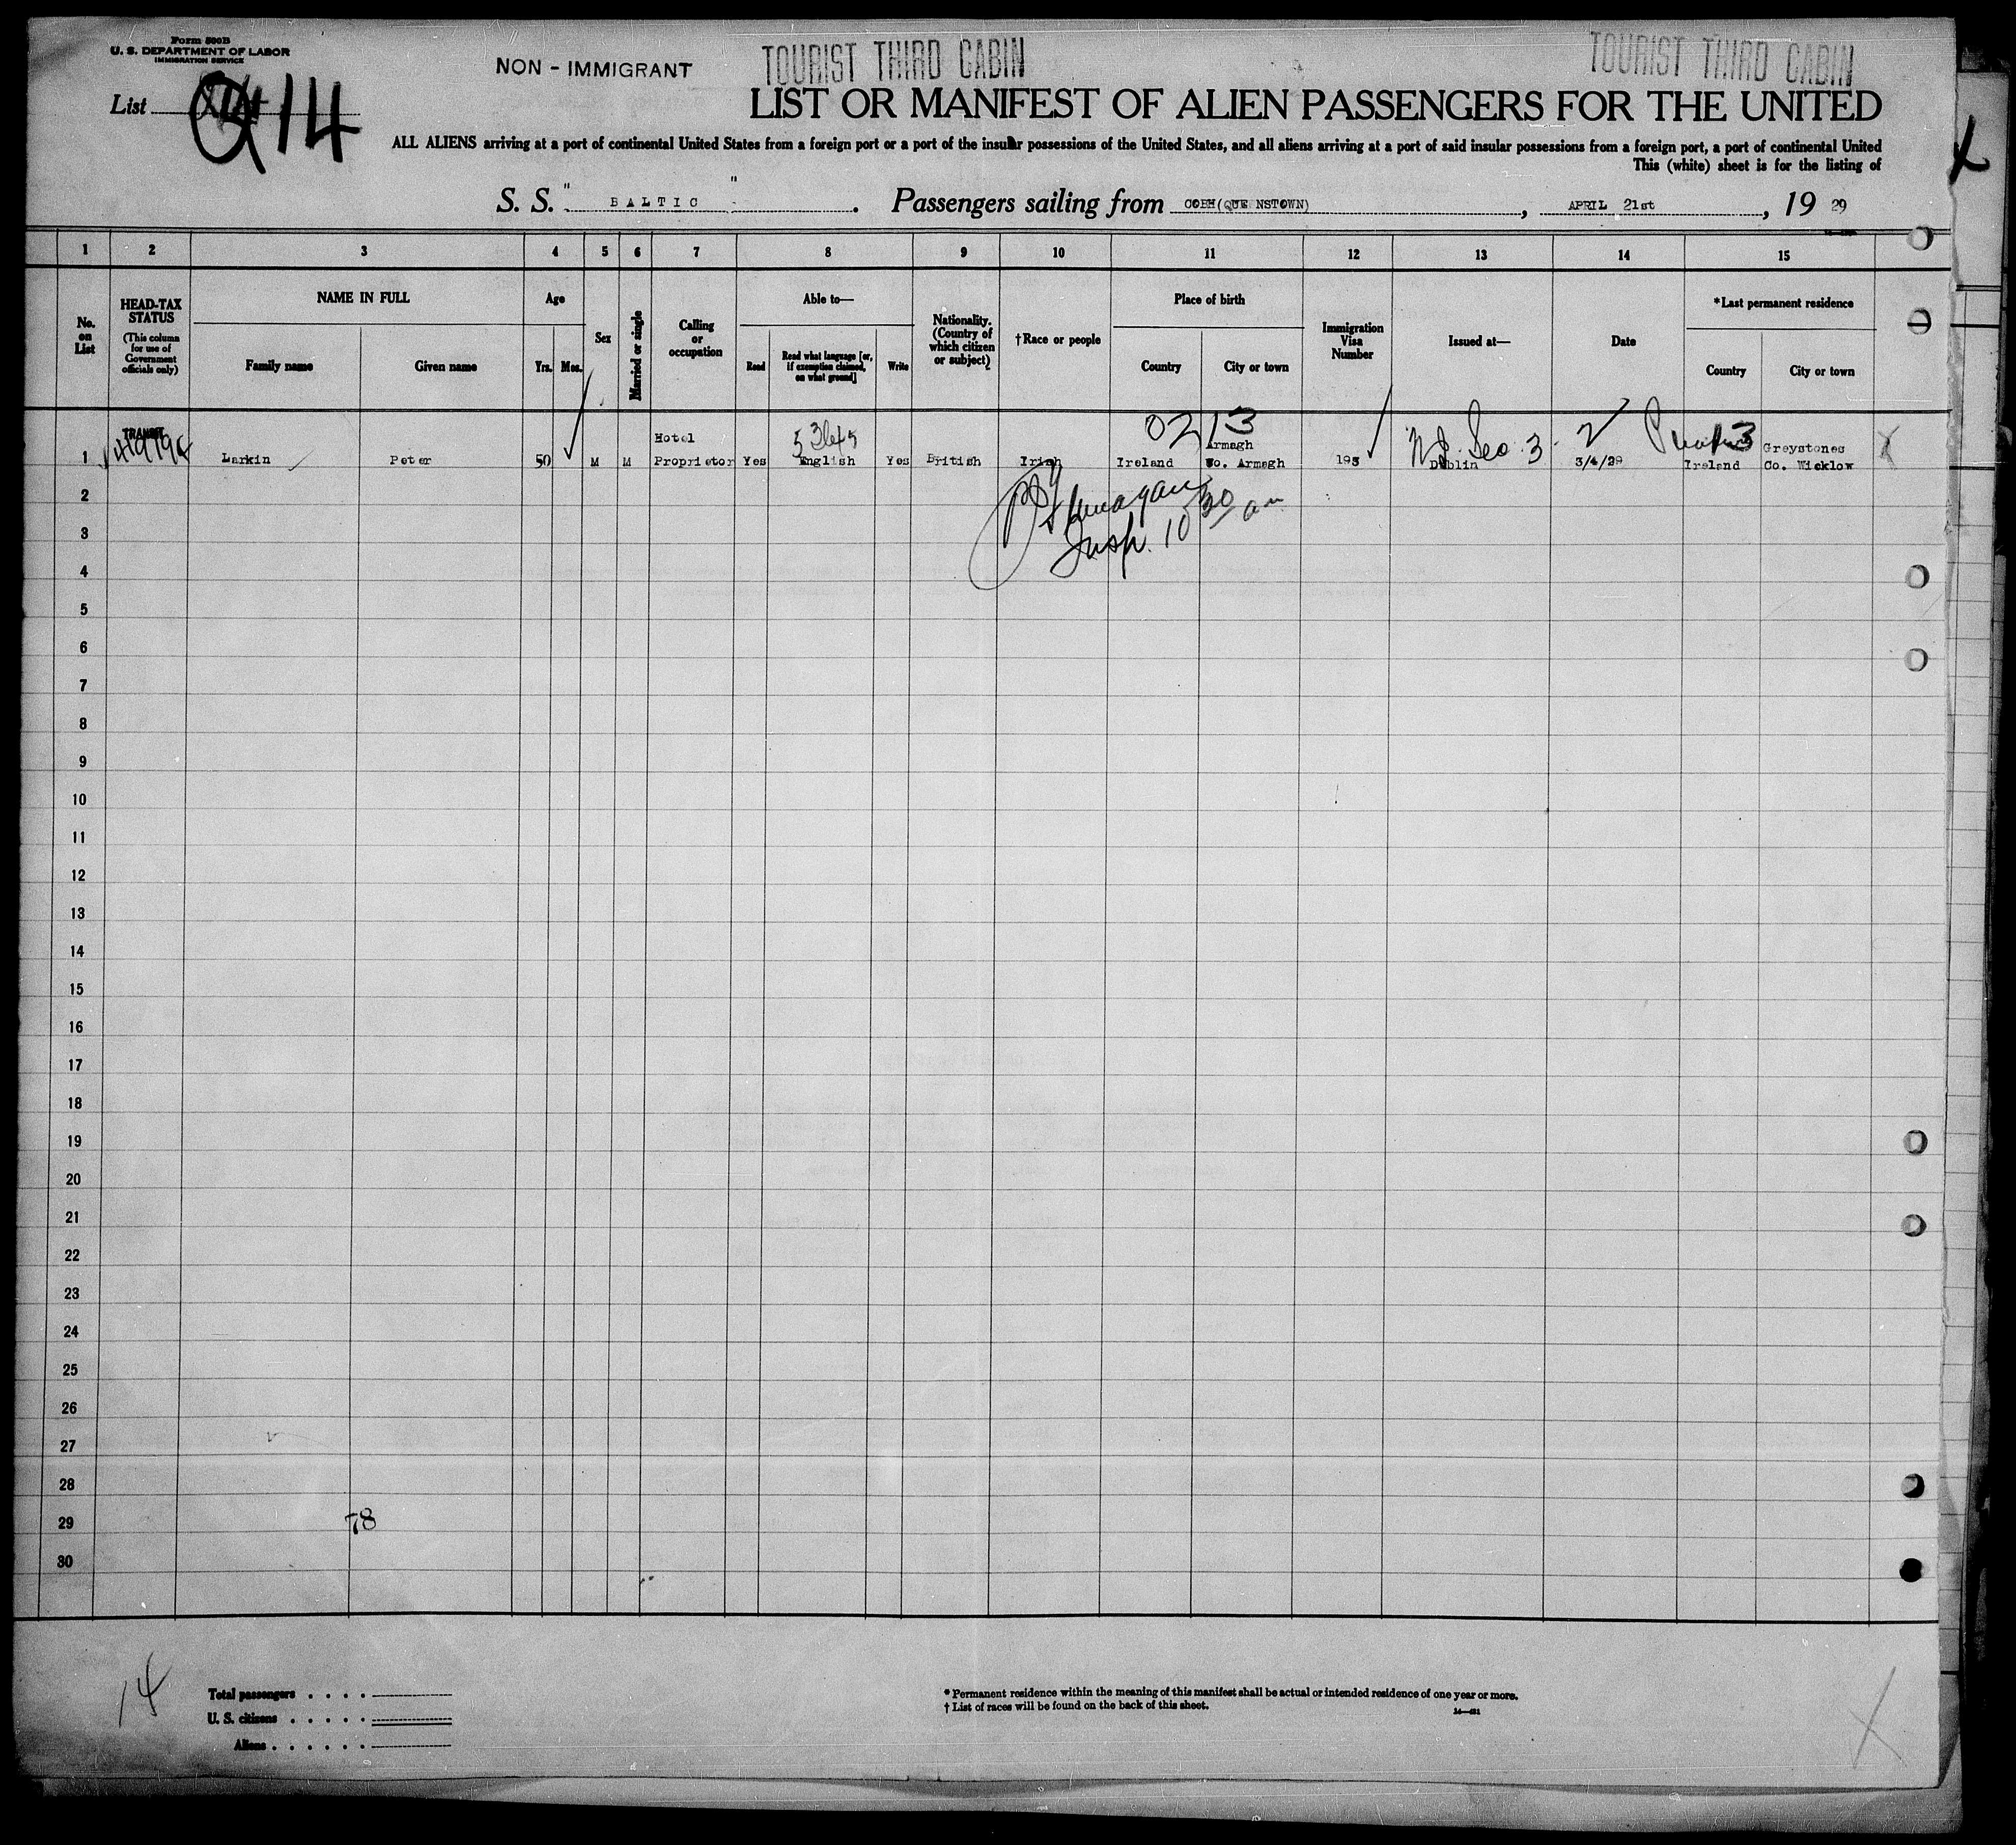 Form 500B
U. S. DEPARTMENT OF LABOR
IMMIGRATION SERVICE
NON - IMMIGRANT
TOURIST THIRD CABIN
TOURIST THIRD CABIN
List 14
LIST OR MANIFEST OF ALIEN PASSENGERS FOR THE UNITED
ALL ALIENS arriving at a port of continental United States from a foreign port or a port of the insular possessions of the United States, and all aliens arriving at a port of said insular possessions from a foreign port, a port of continental United
This (white) sheet is for the listing of
S. S. " BALTIC " . Passengers sailing from COBH(QUE NSTOWN) , APRIL 21st , 19 29
1 2 3 4 5 6 7 8 9 10 11 12 13 14 15
No. on List
HEAD-TAX STATUS
(This column for use of Government officials only)
NAME IN FULL
Family name
Given name
Age
Yrs.
Mos.
Sex
Married or single
Calling or occupation
Able to—
Read
Read what language [or, if exemption claimed, on what ground]
Write
Nationality. (Country of which citizen or subject)
†Race or people
Place of birth
Country
City or town
Immigration Visa Number
Issued at—
Date
*Last permanent residence
Country
City or town
TRANSIT
0213
3
Hotel
Armagh
Greystones
1 Larkin Peter 50 M M Proprietor Yes English Yes British Irish Ireland Co. Armagh 193 Dublin 3/4/29 Ireland Co. Wicklow
Insp. 10 30 am
2
3
4
5
6
7
8
9
10
11
12
13
14
15
16
17
18
19
20
21
22
23
24
25
26
27
28
29
78
30
14
Total passengers
U. S. citizens
Aliens
* Permanent residence within the meaning of this manifest shall be actual or intended residence of one year or more.
† List of races will be found on the back of this sheet.